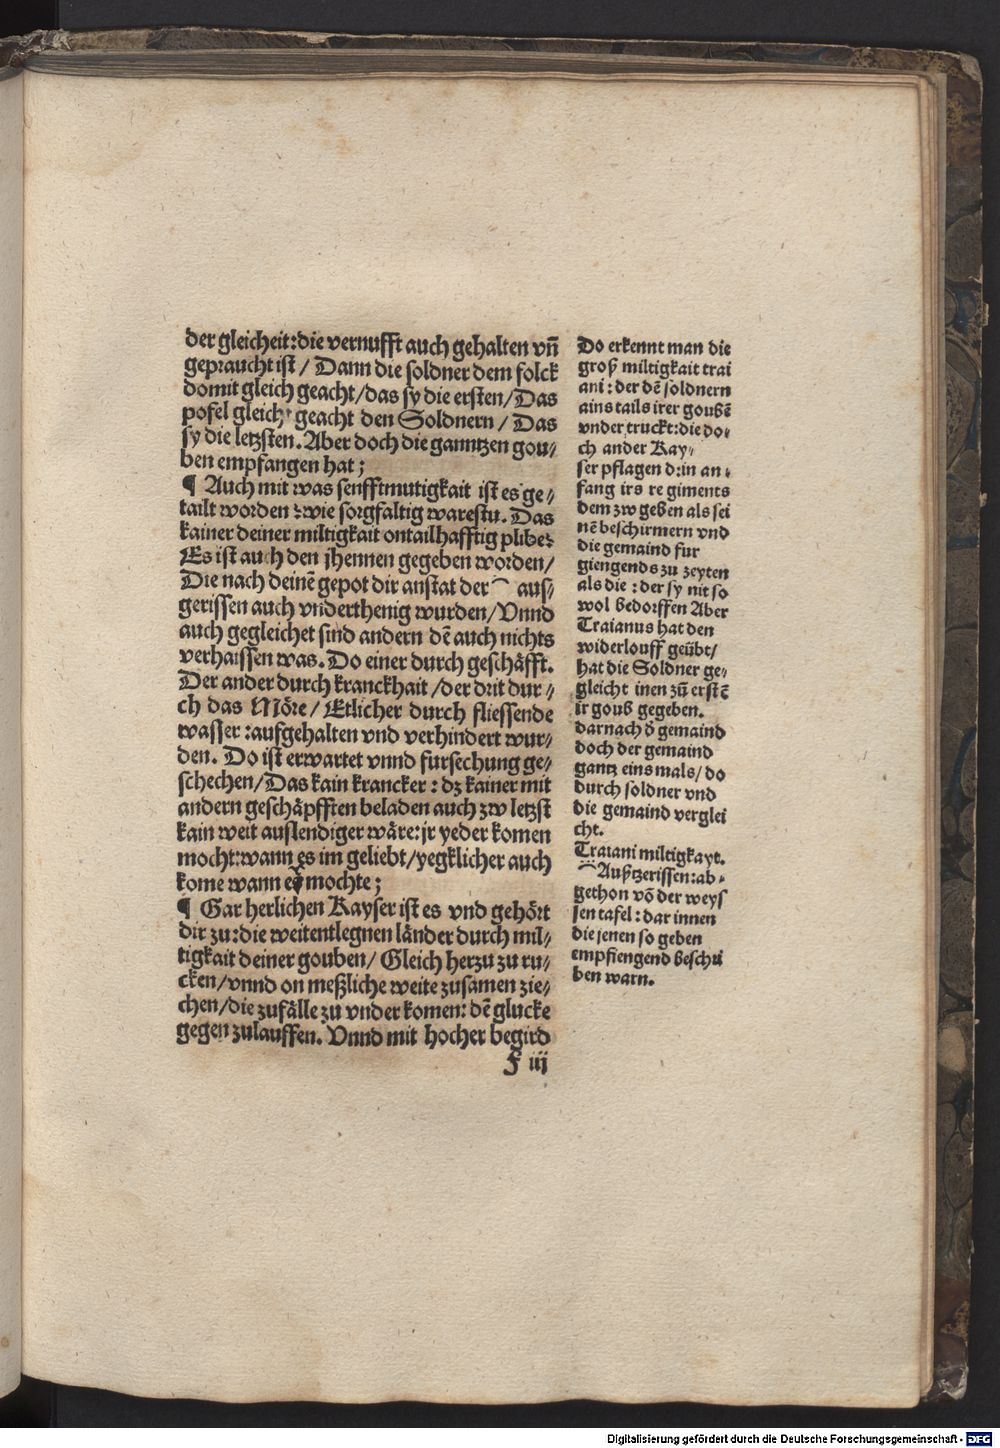 der gleicheit:die vernufft auch gehalten vñ
gepraucht ist / Dann die soldner dem folck
domit gleich geacht/das sy die ersten/Das
pofel gleich geacht den Soldnern / Das
sy die letzsten. Aber doch die ganntzen gou⸗
ben empfangen hat;
¶ Auch mit was senfftmutigkait ist es ge⸗
tailt worden ꝛ wie sorgfaltig warestu. Das
kainer deiner miltigkait ontailhafftig plibeꝛ
Es ist auch den jhennen gegeben worden/
Die nach deinē gepot dir anstat der ⁀ aus⸗
gerissen auch vnderthenig wurden/Vnnd
auch gegleichet sind andern dē auch nichts
verhaissen was. Do einer durch geschäfft.
Der ander durch kranckhait /der drit dur⸗
ch das Möre/ Etlicher durch fliessende
wasser :aufgehalten vnd verhindert wur⸗
den. Do ist erwartet vnnd fursechung ge⸗
schechen/Das kain krancker : dz kainer mit
andern geschäpfften beladen auch zw letzst
kain weit auslendiger wäre:jr yeder komen
mocht:wann es im geliebt/yegklicher auch
kome wann er mochte;
¶ Gar herlichen Kayser ist es vnd gehört
dir zu:die weitentlegnen länder durch mil⸗
tigkait deiner gouben/ Gleich herzu zu ru⸗
cken/vnnd on meßliche weite zusamen zie⸗
chen/die zufälle zu vnder komen: dē glucke
gegen zulauffen. Vnnd mit hocher begird
F iij
Do erkennt man die
groß miltigkait trai
ani : der dē soldnern
ains tails irer goubē
vnder truckt:die do⸗
ch ander Kay⸗
ser pflagen d:in an⸗
fang irs re giments
dem zw geben als sei
nē beschirmern vnd
die gemaind fur
giengends zu zeyten
als die : der sy nit so
wol bedorffen Aber
Traianus hat den
widerlouff geübt/
hat die Soldner ge⸗
gleicht inen zů erstē
ir goub gegeben.
darnach d̄ gemaind
doch der gemaind
gantz eins mals/ do
durch soldner vnd
die gemaind verglei
cht.
Traiani miltigkayt.
⁀Außtzerissen:ab⸗
gethon vō der weys
sen tafel : dar innen
die jenen so geben
empfiengend beschri
ben warn.
Digitalisierung gefördert durch die Deutsche Forschungsgemeinschaft - DFG